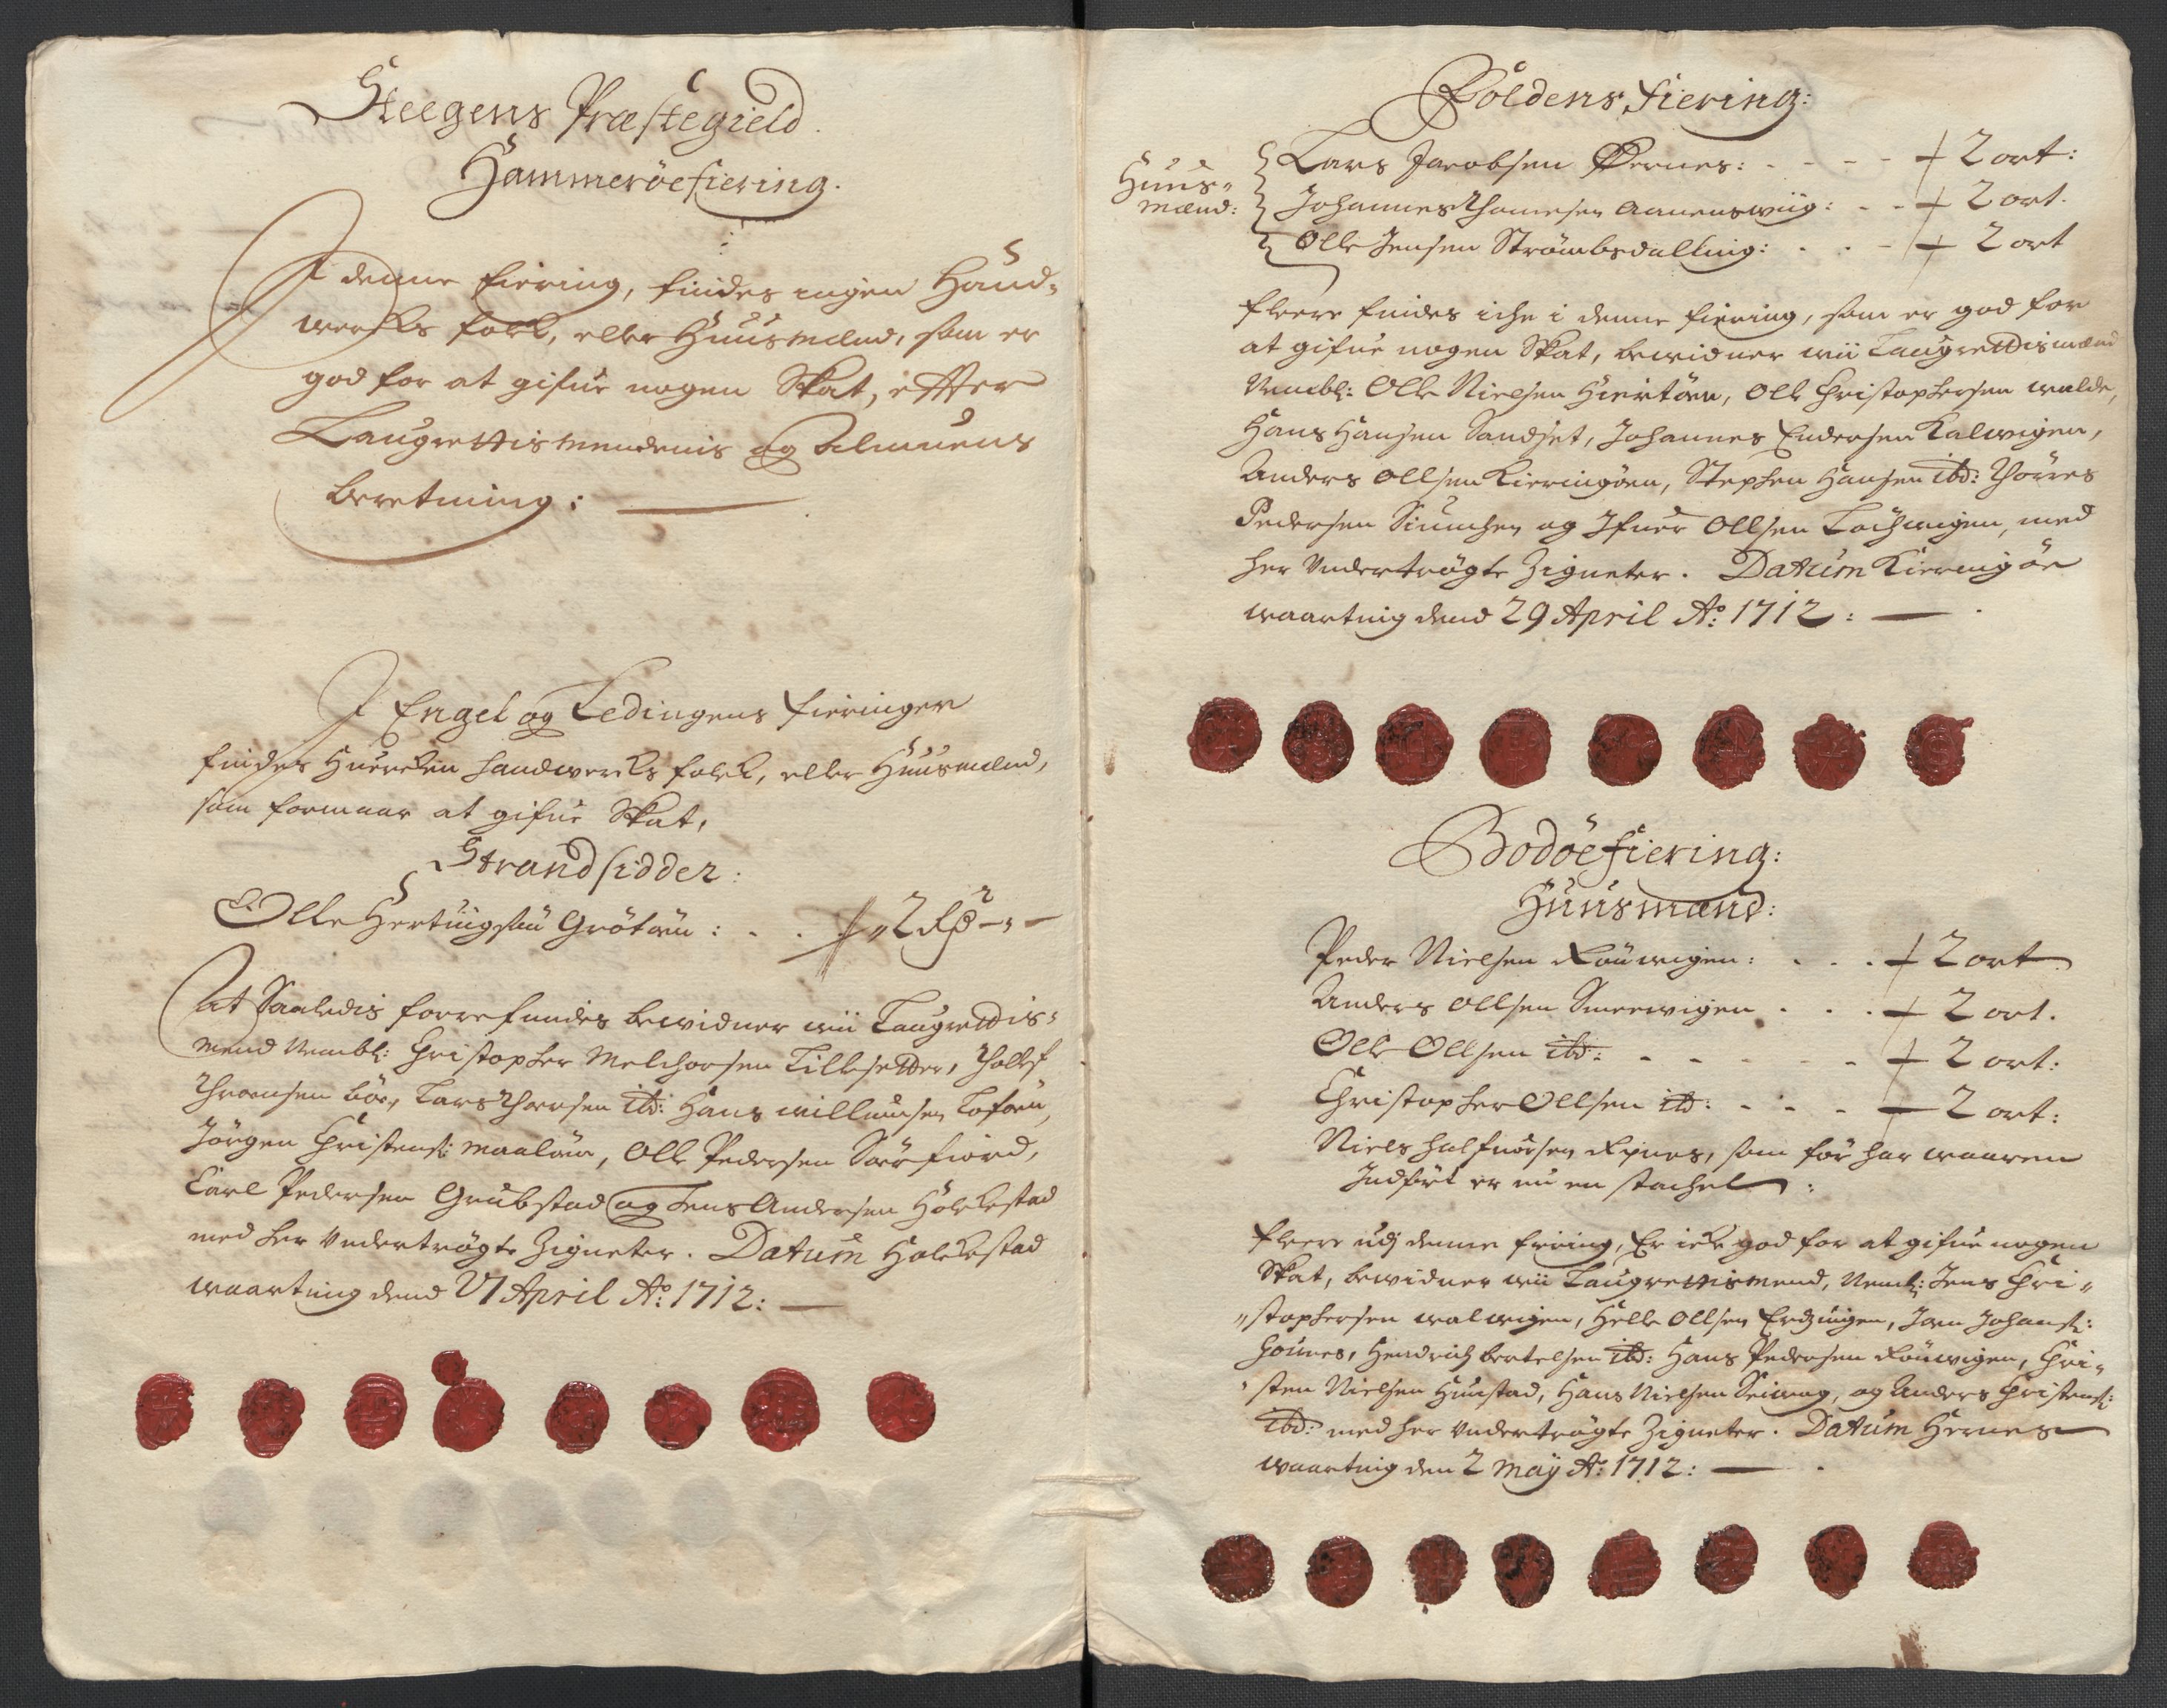 Steegens Præstegield.
Hammerøefiering.
I denne fiering, findes ingen Haand-
wercks folk, eller Huusmænd, som er
god for at gifue nogen Skat, effter
Laugrettismendenis og Almuens
beretning:
I Engel og Ledingens fieringer
findes Huercken handwercks folck, eller Huusmænd,
som formaar at gifue Skat,
Strandsidder:
Olle Hertuigsen Grötøen: . . 2 Rdr
At Saaledis forrefundes bewidner wii Laugrettis-
mend Nembl: Christopher Melchorsen Tillesetter,
Thronsen böe, Lars Thorsen ibd: Hans willumsen Toføen,
Jörgen Christens: Maaløen, Olle Pedersen Sørfiord,
Carl Pedersen Grubstad og Jens Andersen Holckestad
med her undertrögte Zigneter. Datum Holckestad
waarting dend 27 April Ao: 1712:
Foldens fiering:
Huus-
mænd:
Lars Jacobsen Øernes: - - - - 2 ort:
Johannes Thomesen Annenswiig: - - 2 ort.
Olle Jensen Strömbsdalling: . . - 2 ort
fleere findes iche i denne fiering, som er god for
at gifue nogen Skat, bewidner wii Laugrettismænd
Nembl: Olle Nielsen Hiertøen, Olle Christophersen walde,
Hans Hansen Sandset, Johannes Endersen Kalwigen,
Anders Ollsen Kieringøen, Stephen Hansen ibd: Thorres
Pedersen og Ifuer Ollsen med
her undertrögte Zigneter. Datum Kieringøe
waarting dend 29 April Ao: 1712:
Bodøe fiering:
Huusmænd:
Peder Nielsen Löuwigen: . . . 2 ort
Anders Ollsen Smeewigen . . . 2 ort.
Olle Ollsen ibd: - - - - - 2 ort:
Christopher Ollsen ibd: - - - 2 ort:
Niels Halfuorsen som för har waaren
Indfört er nu en stachel:
fleere udj denne fiering, Er icke god for at gifue nogen
Skat, bewidner wii Laugrettismend, Neml: Jens Chri-
stophersen walwigen, Helle Ollsen Johans:
Hendrich bertelsen ibd: Hans Pedersen Löuwigen, Chri-
sten Nielsen Hunstad, Hans Nielsen og Anders Christens:
ibd: med her undertrögte Zigneter. Datum Hernes
waarting den 2 Maÿ Ao: 1712: